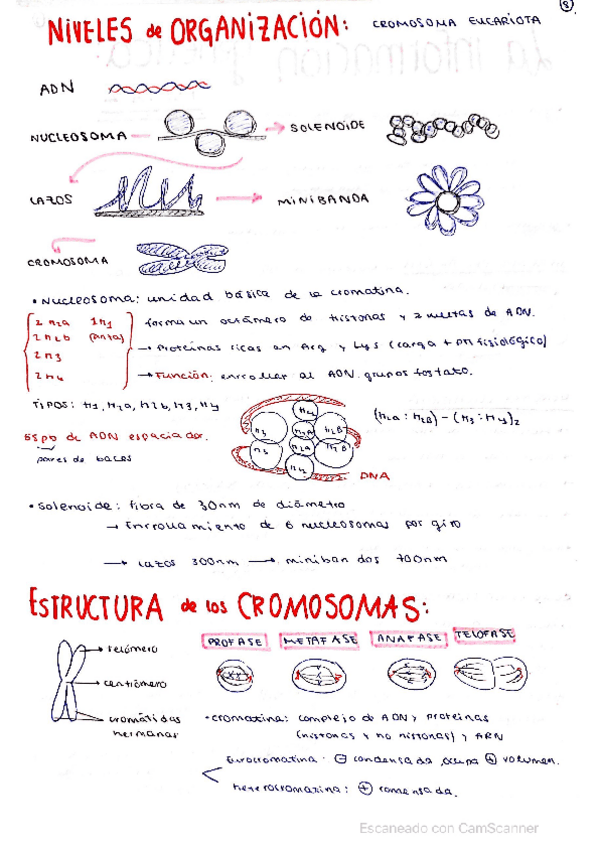 8
NIVELES de ORGANIZACIÓN: CROMOSOMA EUCARIOTA
ADN
NUCLEOSOMA
SOLENOIDE
LAZOS
MINIBANDA
CROMOSOMA
• Nucleosoma: unidad básica de la cromatina.
2 H2A 1H1
2 H2B
2 H3
2 H4
forma un octámero de histonas y 2 vueltas de ADN.
→ Proteínas ricas en Arg y Lys (carga + pH fisiológico)
→ Función: enrollar al ADN. grupos fosfato.
TIPOS: H1, H2A, H2B, H3, H4
55pb de ADN espaciador.
pares de bases
H4
H3
H2A
H2B
H3
H2A
H2B
H4
DNA
(H2A : H2B) - (H3 : H4)2
• Solenoide: fibra de 30nm de diámetro
→ Enrollamiento de 6 nucleosomas por giro
→ Lazos 300nm → minibandas 700nm
ESTRUCTURA de los CROMOSOMAS:
PROFASE METAFASE ANAFASE TELOFASE
→ telómero
→ centrómero
cromátidas
hermanas
• cromatina: complejo de ADN y proteínas
(histonas y no histonas) y ARN
Eurocromatina: ⊖ condensada, ocupa ⊕ volumen.
heterocromatina: ⊕ comensada.
Escaneado con CamScanner